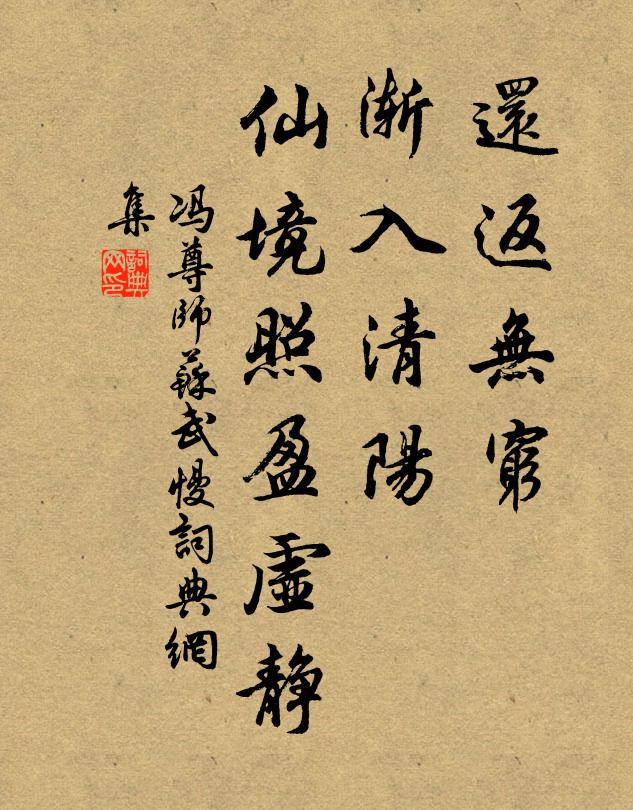 還返無窮
漸入清陽
仙境照盈虛靜
冯尊師蘇武慢詞典網
集
詞典
网印